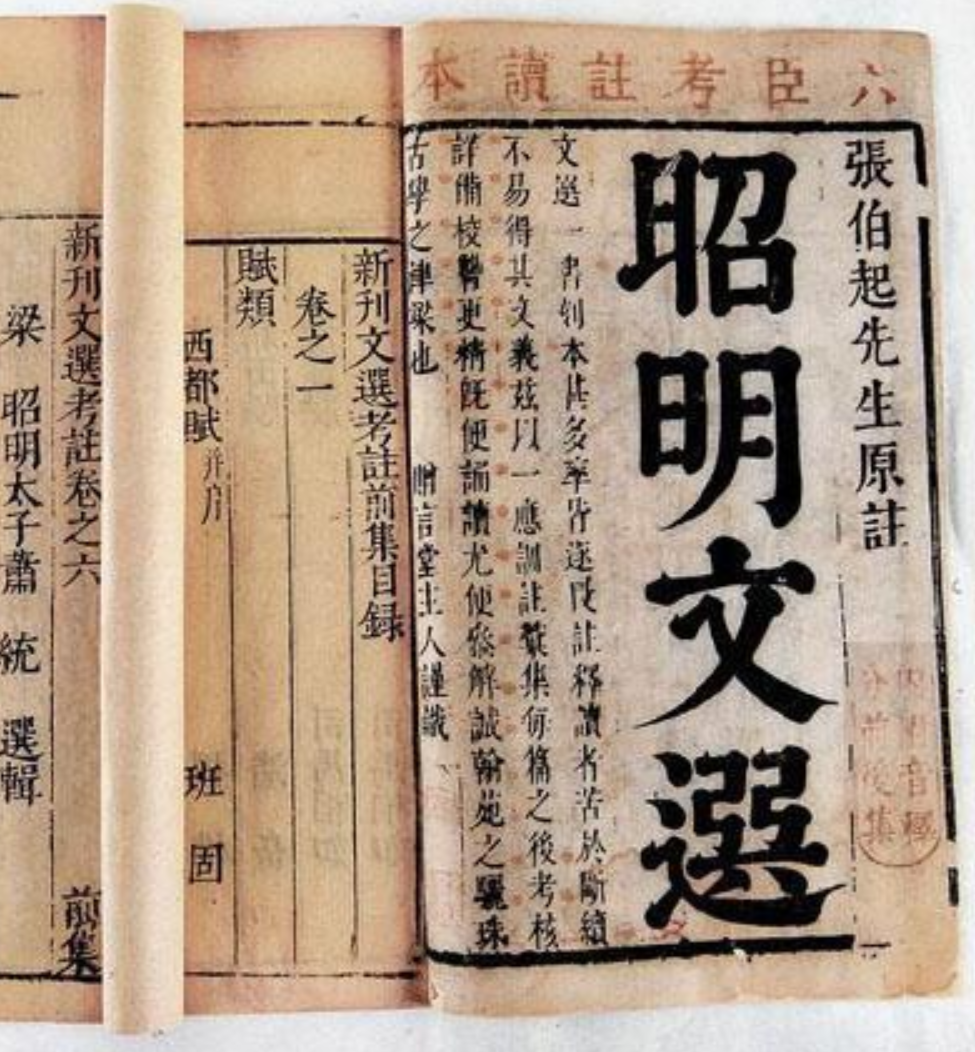 六臣考註讀本
張伯起先生原註
昭明文選
文選一書刊本甚多率皆逐段註釋讀者苦於斷續
不易得其文義茲以一應訓註彙集每篇之後考核
詳備校讐更精既便誦讀尤便參解誠翰苑之驪珠
古學之津梁也 贈言堂主人謹識
前後集
新刊文選考註前集目録
卷之一
賦類
西都賦 并序 班固
新刊文選考註卷之六 前集
梁 昭明太子蕭 統 選輯